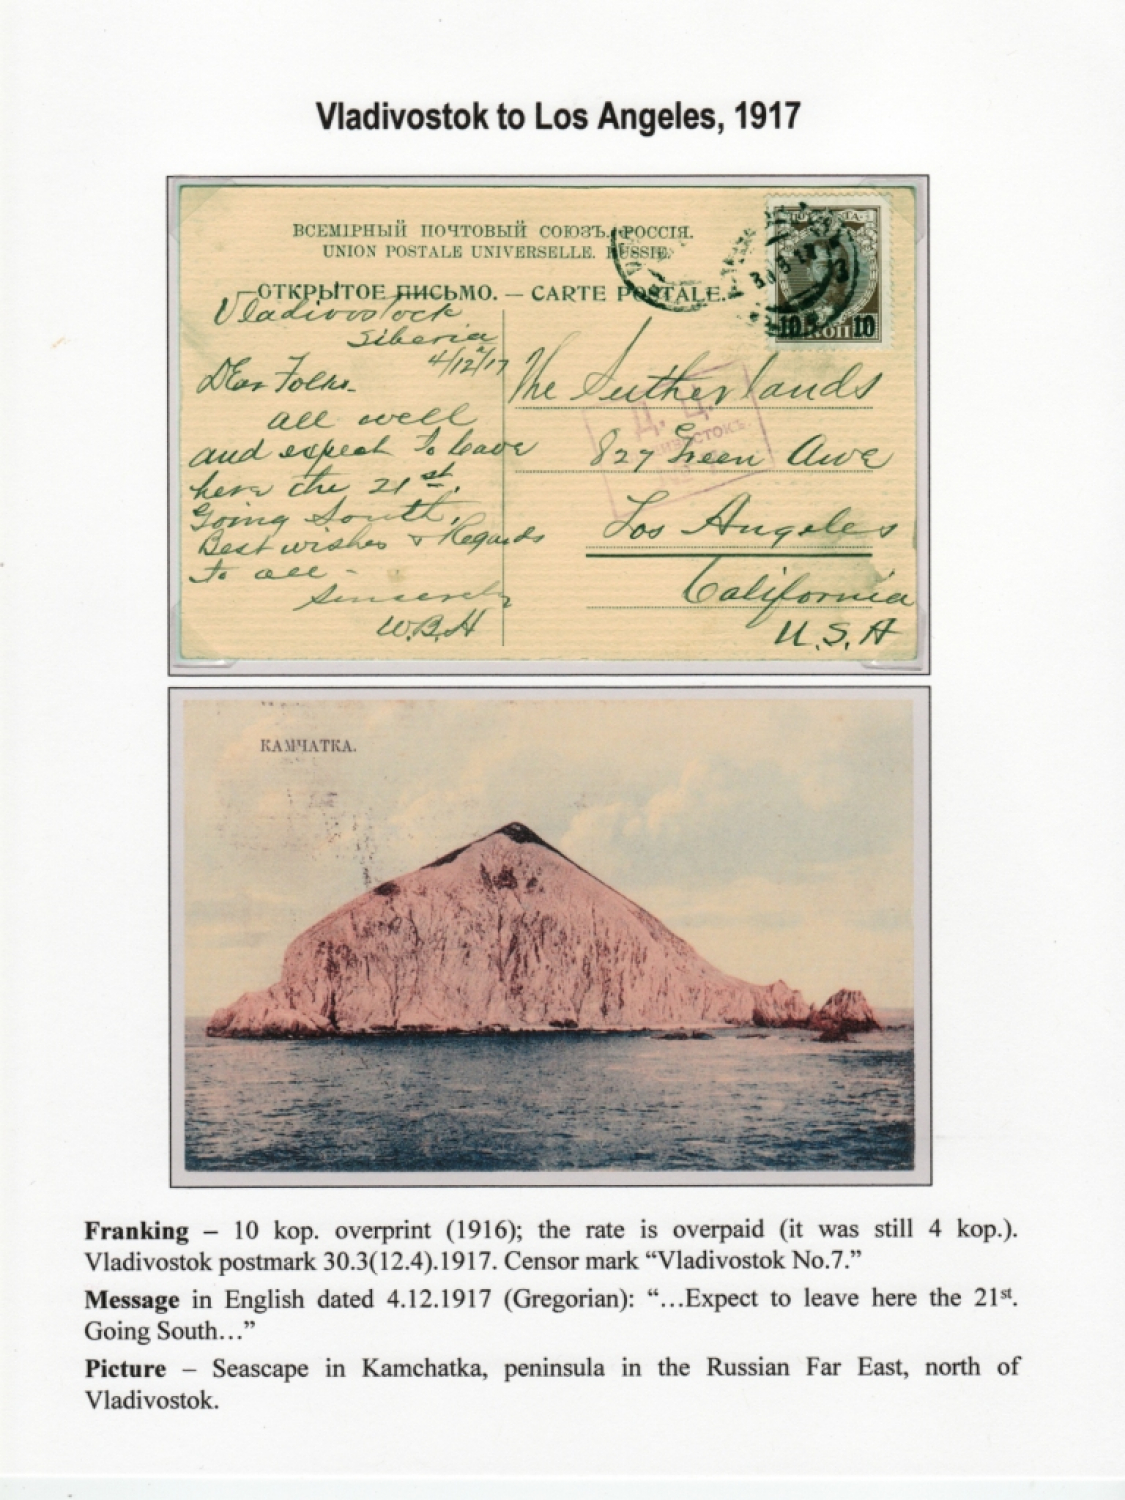 Vladivostok to Los Angeles, 1917
ВСЕМІРНЫЙ ПОЧТОВЫЙ СОЮЗЪ. РОССІЯ.
UNION POSTALE UNIVERSELLE. RUSSIE.
ОТКРЫТОЕ ПИСЬМО. — CARTE POSTALE.
Vladivostock
Siberia
4/12/17
Dear Folks-
all well
and expect to leave
here the 21st.
Going South.
Best wishes & Regards
to all -
Sincerely
W.B.H
The Sutherlands
827 Green Ave
Los Angeles
California
U.S.A
10 КОП 10
Д. Ц.
КАМЧАТКА.
Franking – 10 kop. overprint (1916); the rate is overpaid (it was still 4 kop.).
Vladivostok postmark 30.3(12.4).1917. Censor mark “Vladivostok No.7.”
Message in English dated 4.12.1917 (Gregorian): “…Expect to leave here the 21st.
Going South…”
Picture – Seascape in Kamchatka, peninsula in the Russian Far East, north of
Vladivostok.